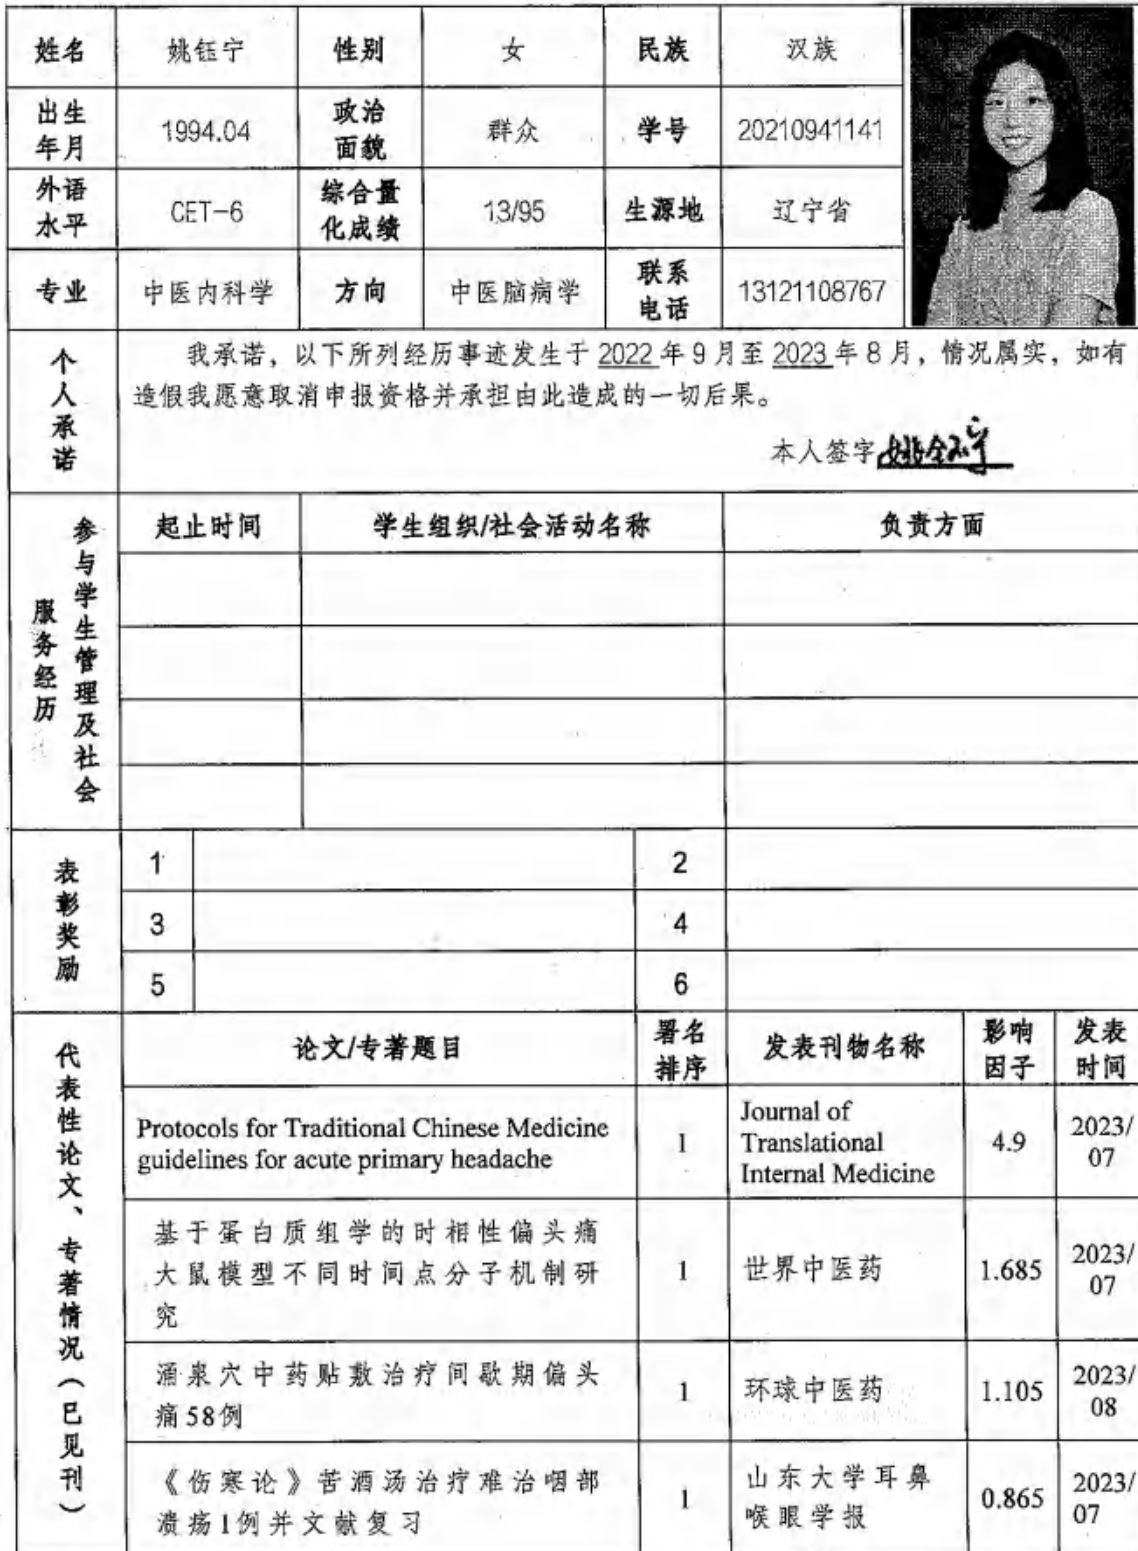 姓名 姚钰宁 性别 女 民族 汉族
出生年月 1994.04 政治面貌 群众 学号 20210941141
外语水平 CET-6 综合量化成绩 13/95 生源地 辽宁省
专业 中医内科学 方向 中医脑病学 联系电话 13121108767
个人承诺
我承诺，以下所列经历事迹发生于 2022 年 9 月至 2023 年 8 月，情况属实，如有
造假我愿意取消申报资格并承担由此造成的一切后果。
本人签字 姚钰宁
参与学生管理及社会
服务经历
起止时间 学生组织/社会活动名称 负责方面
表彰奖励
1 2
3 4
5 6
代表性论文、专著情况（已见刊）
论文/专著题目 署名排序 发表刊物名称 影响因子 发表时间
Protocols for Traditional Chinese Medicine
guidelines for acute primary headache
1
Journal of
Translational
Internal Medicine
4.9
2023/
07
基于蛋白质组学的时相性偏头痛
大鼠模型不同时间点分子机制研
究
1
世界中医药
1.685
2023/
07
涌泉穴中药贴敷治疗间歇期偏头
痛58例
1
环球中医药
1.105
2023/
08
《伤寒论》苦酒汤治疗难治咽部
溃疡1例并文献复习
1
山东大学耳鼻
喉眼学报
0.865
2023/
07